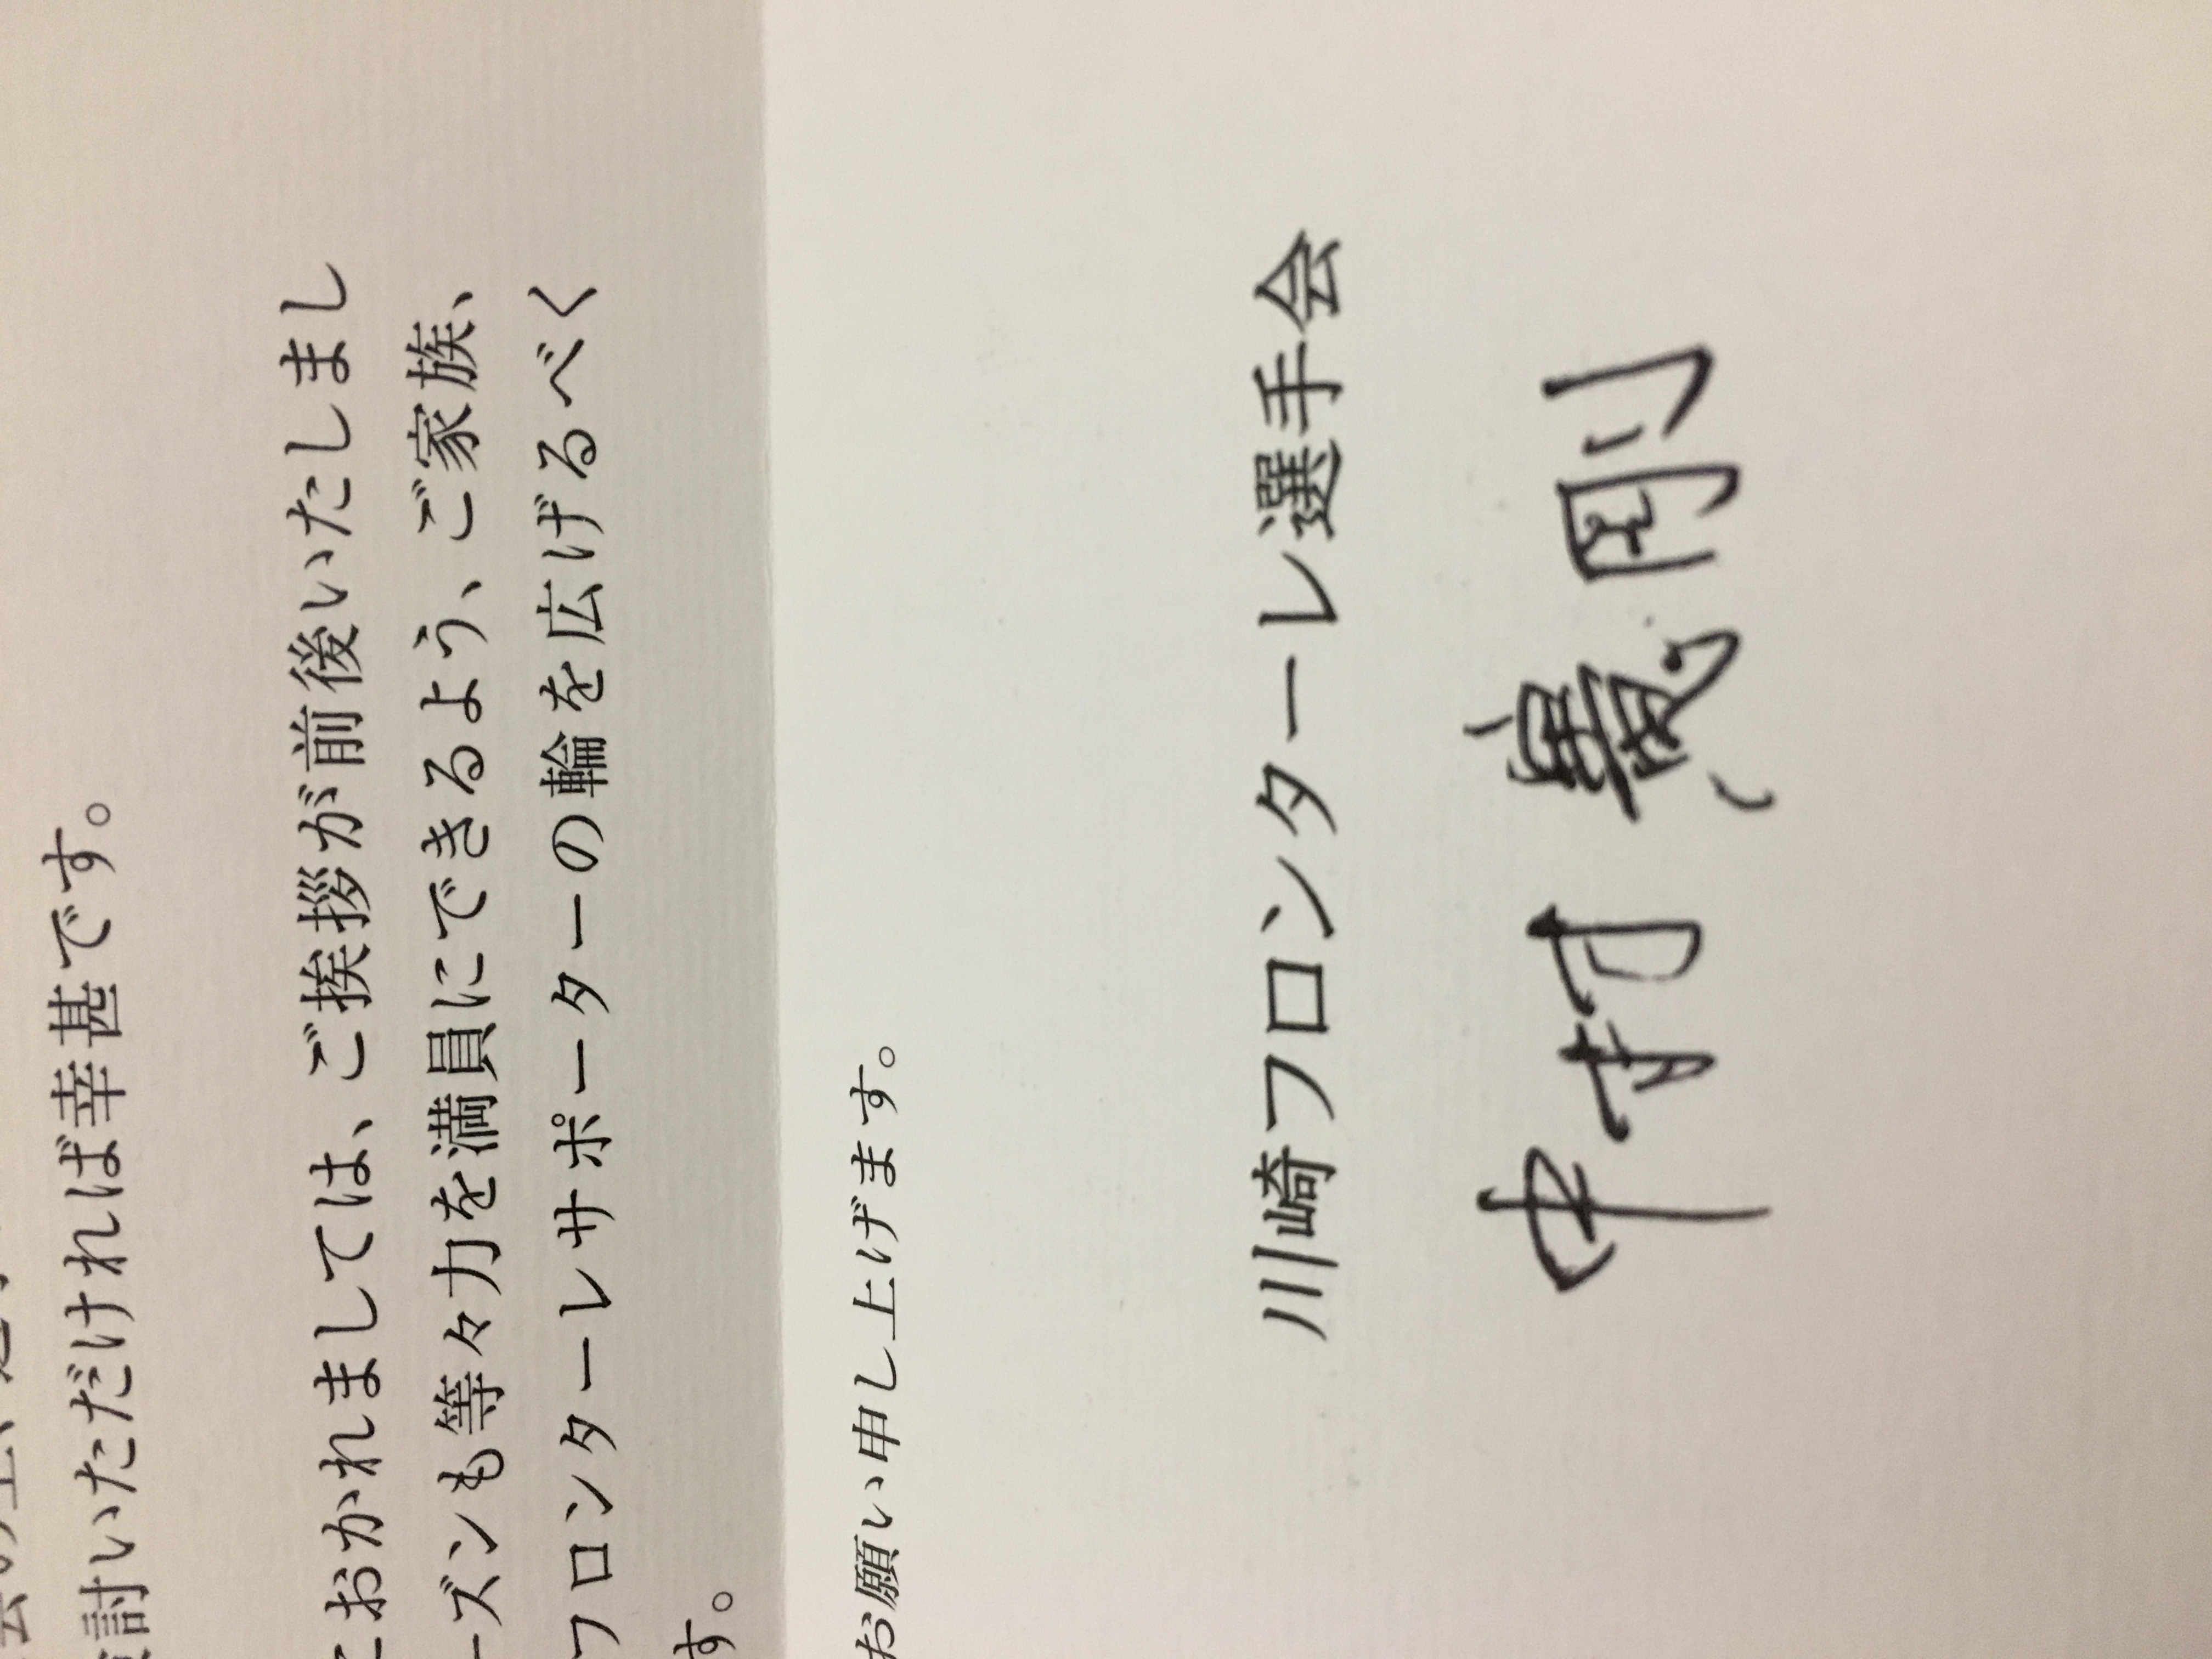 討いただければ幸甚です。
おかれましては、ご挨拶が前後いたしまし
ーズンも等々力を満員にできるよう、ご家族、
フロンターレサポーターの輪を広げるべく
す。
お願い申し上げます。
川崎フロンターレ選手会
中村憲剛